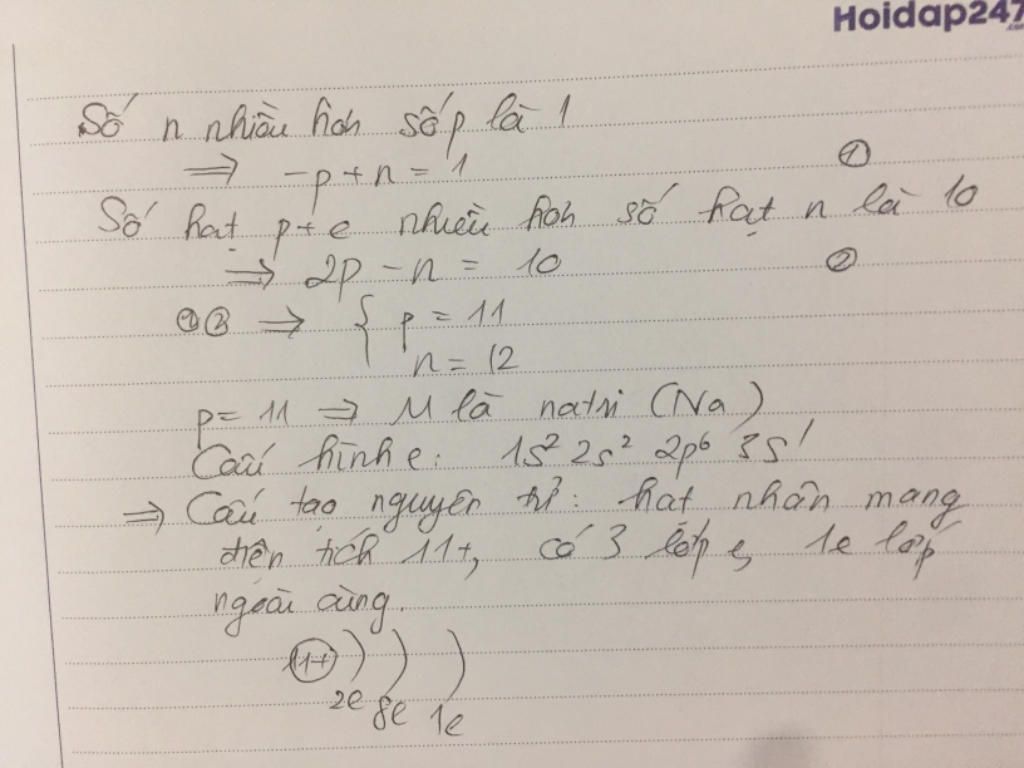 Hoidap247
.com
Số n nhiều hơn số p là 1
⇒ -p + n = 1 ①
Số hạt p + e nhiều hơn số hạt n là 10
⇒ 2p - n = 10 ②
①② ⇒ { p = 11
n = 12
p = 11 ⇒ M là natri (Na)
Cấu hình e: 1s² 2s² 2p⁶ 3s¹
⇒ Cấu tạo nguyên tử: hạt nhân mang
điện tích 11+, có 3 lớp e, 1e lớp
ngoài cùng.
11+ ) ) )
2e 8e 1e